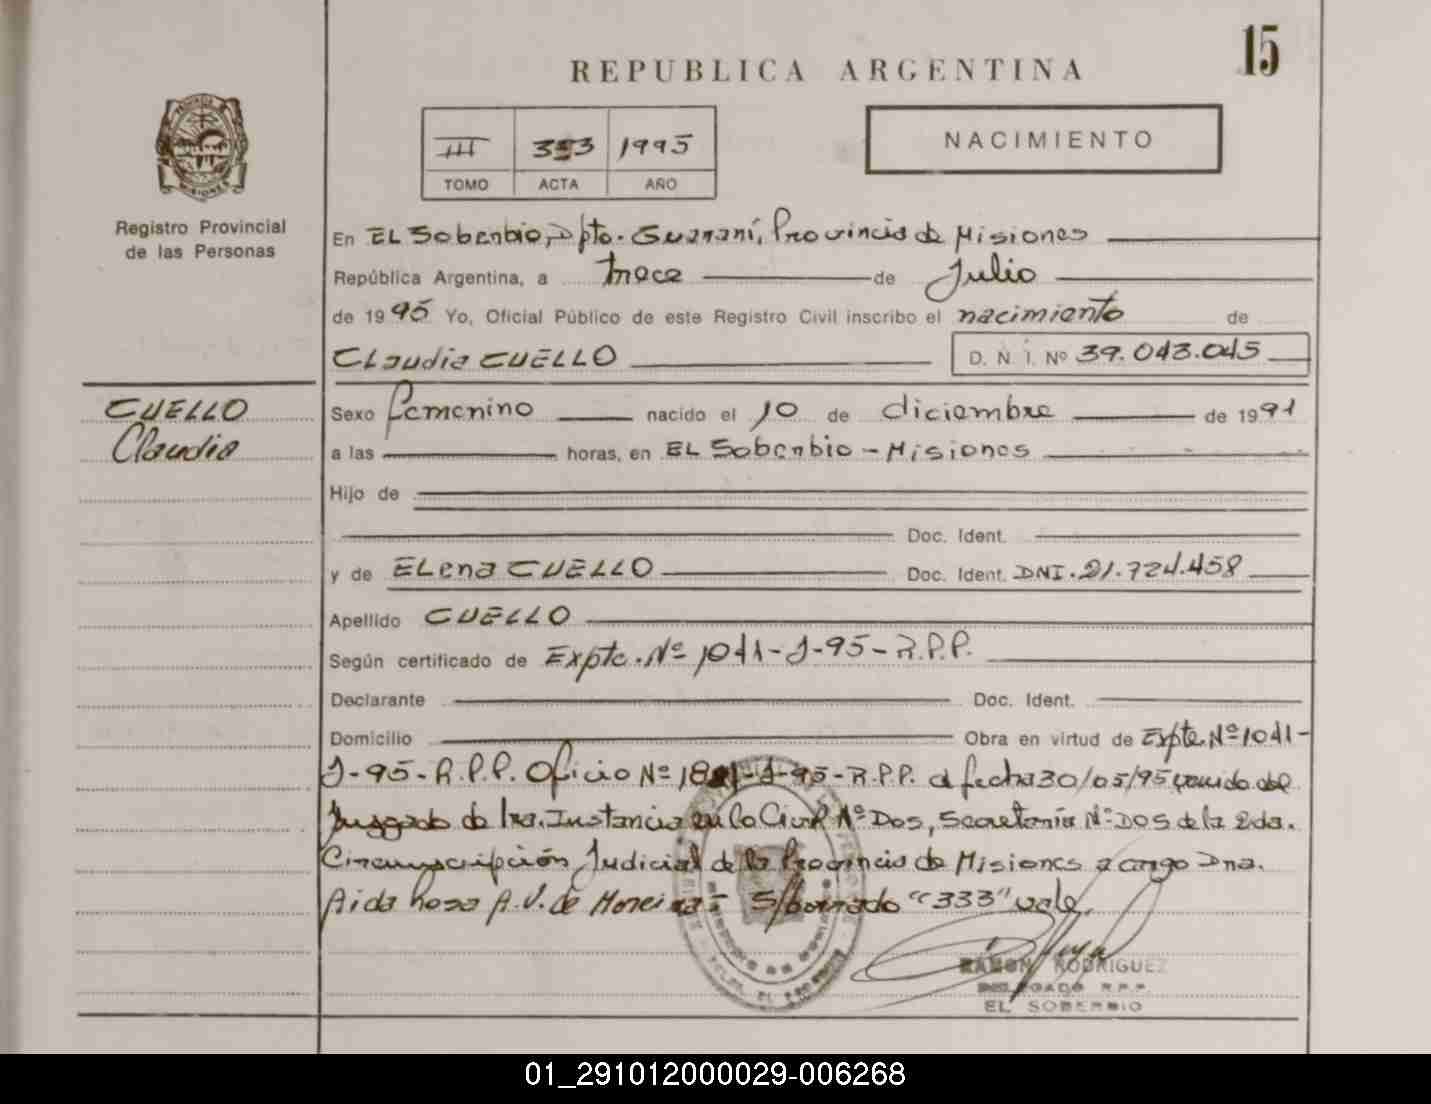 15
REPUBLICA ARGENTINA
III 333 1995
TOMO ACTA AÑO
NACIMIENTO
Registro Provincial
de las Personas
En EL Soberbio, Dpto. Guaraní, Provincia de Misiones
República Argentina, a trece de Julio
de 1995 Yo, Oficial Público de este Registro Civil inscribo el nacimiento de
Claudia CUELLO D. N. I. Nº 39.043.045
CUELLO
Claudia
Sexo femenino nacido el 10 de diciembre de 1991
a las horas, en EL Soberbio - Misiones
Hijo de
Doc. Ident.
y de Elena CUELLO Doc. Ident. DNI. 21.724.458
Apellido CUELLO
Según certificado de Expte. Nº 1041-J-95-R.P.P.
Declarante Doc. Ident.
Domicilio Obra en virtud de Expte. Nº 1041-
J-95-R.P.P. Oficio Nº -J-95-R.P.P. d fecha 30/05/95 venido del
Juzgado de 1ra. Instancia en lo Civil Nº Dos, Secretaría Nº Dos de la 2da.
Circunscripción Judicial de la Provincia de Misiones a cargo Dra.
Aida Rosa A.V. de Moreira - S/borrado "333" vale.
RAMON RODRIGUEZ
DELEGADO R.P.P.
EL SOBERBIO
01_291012000029-006268